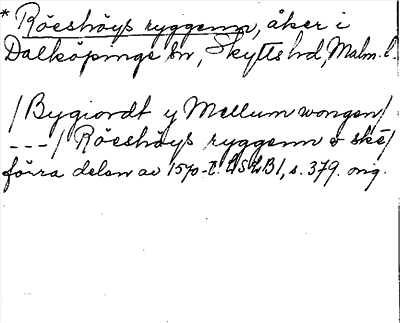 * Röeshöys ryggenn, åker i
Dalköpinge sn, Skytts hd, Malm. l.
/Bygiordt y Mellum wongen/
---/ Röeshöys ryggenn ö skẽ/
förra delen av 1570-t. LSLB1, s. 379. orig.